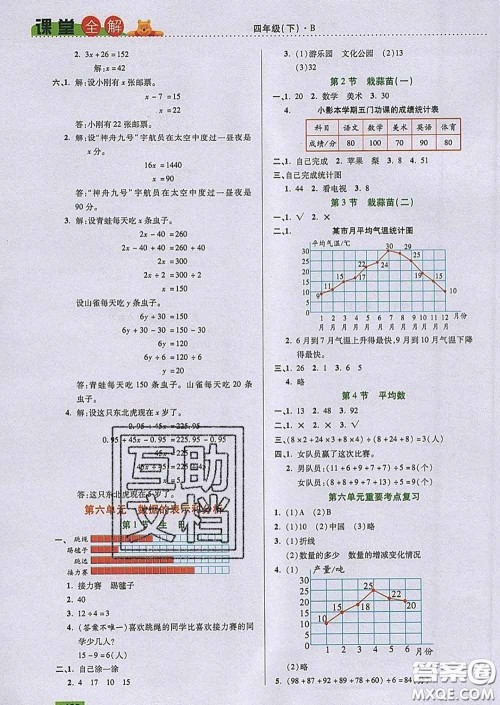 课堂全解
四年级(下)·B
2. 3x+26=152
解:x=42
六、1. 解:设小刚有 x 张邮票。
x-7=15
x=22
答:小刚有 22 张邮票。
2. 解:设“神舟九号”宇航员在太空中度过一昼夜是
x 分。
16x=1440
x=90
答:“神舟九号”宇航员在太空中度过一昼夜是
90 分。
3. 解:设青蛙每天吃 x 条虫子。
2x-40=260
2x-40+40=260+40
2x=300
x=150
设山雀每天吃 y 条虫子。
6y+30=150
6y+30-30=150-30
6y=120
y=20
答:青蛙每天吃 150 条虫子。山雀每天吃 20
条虫子。
4. 解:设这只东北虎现在 x 岁了。
0.95+45x=225.95
0.95+45x-0.95=225.95-0.95
答:这只东北虎现在 5 岁了。
第六单元 数据的表示和分析
第1节 生日
一、跳绳
踢毽子
跳远
接力赛
1. 接力赛 踢毽子
2. 40
3. 12÷4=3
4. (答案不唯一)喜欢跳绳的同学比喜欢接力赛的同
学少几人?
15-9=6(人)
二、1. 自己涂一涂
2. 4 17 10 15
3. (1)游乐园 文化公园 (2)4
(3)32
第2节 栽蒜苗(一)
一、1. 20 2. 数学 美术 3. 30
小影本学期五门功课的成绩统计表
科目 语文 数学 美术 英语 体育
成绩/分 80 100 70 90 80
二、1. 自己完成 2. 苹果 梨 3. 18
三、自己完成统计图
1. 44 2. 看电视 3. 18
第3节 栽蒜苗(二)
一、1. √ 2. × 3. ×
二、1. 某市月平均气温统计图
平均气温/℃
30
25
20
15
10
5
0
9 11 16 22 23 30 29 25 19 15 10
1 2 3 4 5 6 7 8 9 10 11 12 月份
月 月 月 月 月 月 月 月 月 月 月 月
2. 6 月到 7 月气温上升得最快,9 月到 10 月下
降得最快。
三、1. 26 2. 21 3. 23
4. 略
第4节 平均数
一、1. 13 2. 48 3. 92
二、1. × 2. √ 3. ×
三、(8×2+24+9×4+7)÷(2+1+4+1)=
四、1. 女队员赢了这次比赛。
2. 男队员:(7+11+8+5+9)÷5=8(个)
女队员:(6+12+9+8+10)÷5=9(个)
第六单元重要考点复习
2. (1)A (2)10 (3)中国 (4)略
3. (1)折线
(2)数量的多少 数量的增减变化情况
4. (1) 产量/吨
30
25
20
15
10
5
0
10 15 18 25 22 20
1 2 3 4 5 6 月份
(2)略
5. (98+87+92+96+91+90+89+93)÷8=
互助
文档
答案圈
MXQE.COM